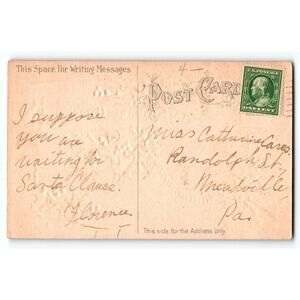 This Space For Writing Messages
4
POST CARD
U.S. POSTAGE
ONE CENT
I suppose
you are
waiting for
Santa Clause.
Florence
Miss Catharine
Randolph St,
Meadville
Pa.
This side for the Address only.